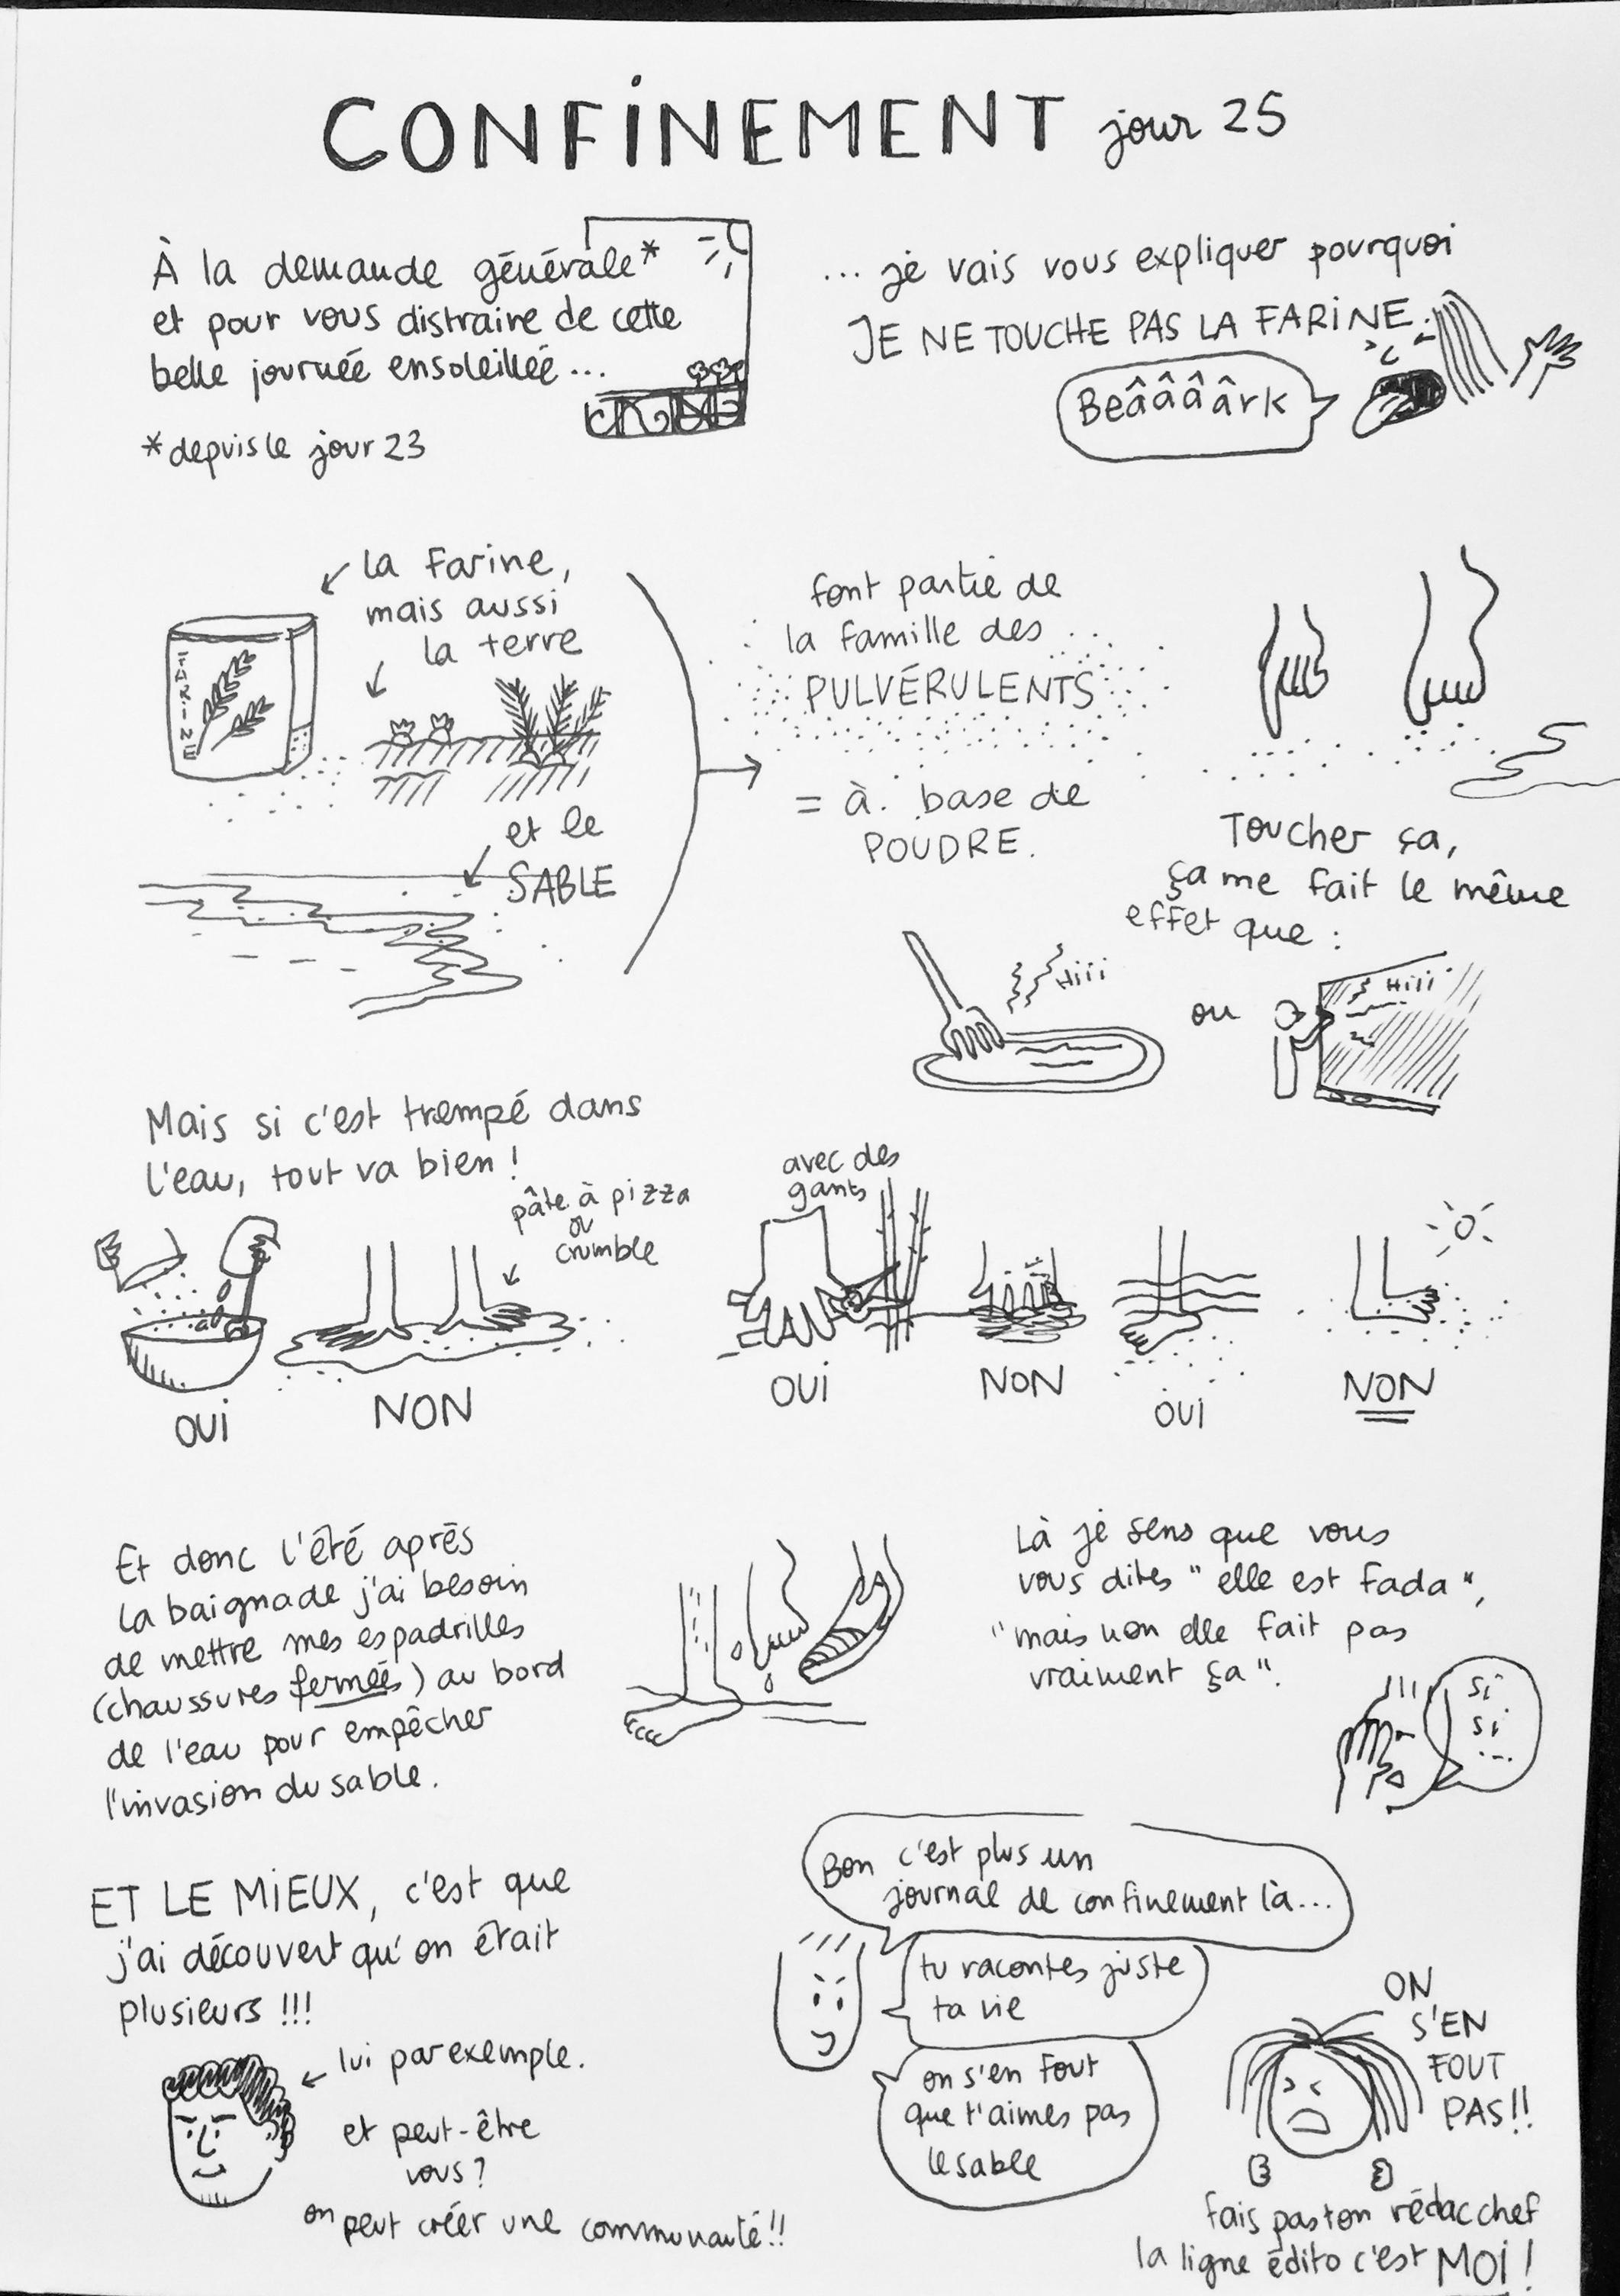 CONFINEMENT jour 25
À la demande générale*
et pour vous distraire de cette
belle journée ensoleillée...
*depuis le jour 23
... je vais vous expliquer pourquoi
JE NE TOUCHE PAS LA FARINE.
Beââââârk
la farine,
mais aussi
la terre
FARINE
et le
SABLE
font partie de
la famille des
PULVÉRULENTS
= à base de
POUDRE.
Toucher ça,
ça me fait le même
effet que :
Hiii
ou
Hiii
Mais si c'est trempé dans
l'eau, tout va bien !
pâte à pizza
ou
crumble
OUI
NON
avec des
gants
OUI
NON
OUI
NON
Et donc l'été après
la baignade j'ai besoin
de mettre mes espadrilles
(chaussures fermées) au bord
de l'eau pour empêcher
l'invasion du sable.
Là je sens que vous
vous dites "elle est fada",
"mais non elle fait pas
vraiment ça".
si
si
...
ET LE MIEUX, c'est que
j'ai découvert qu'on était
plusieurs !!!
lui par exemple.
et peut-être
vous ?
on peut créer une communauté !!
Bon c'est plus un
journal de confinement là...
tu racontes juste
ta vie
on s'en fout
que t'aimes pas
le sable
ON
S'EN
FOUT
PAS!!
fais pas ton rédac chef
la ligne édito c'est MOI !